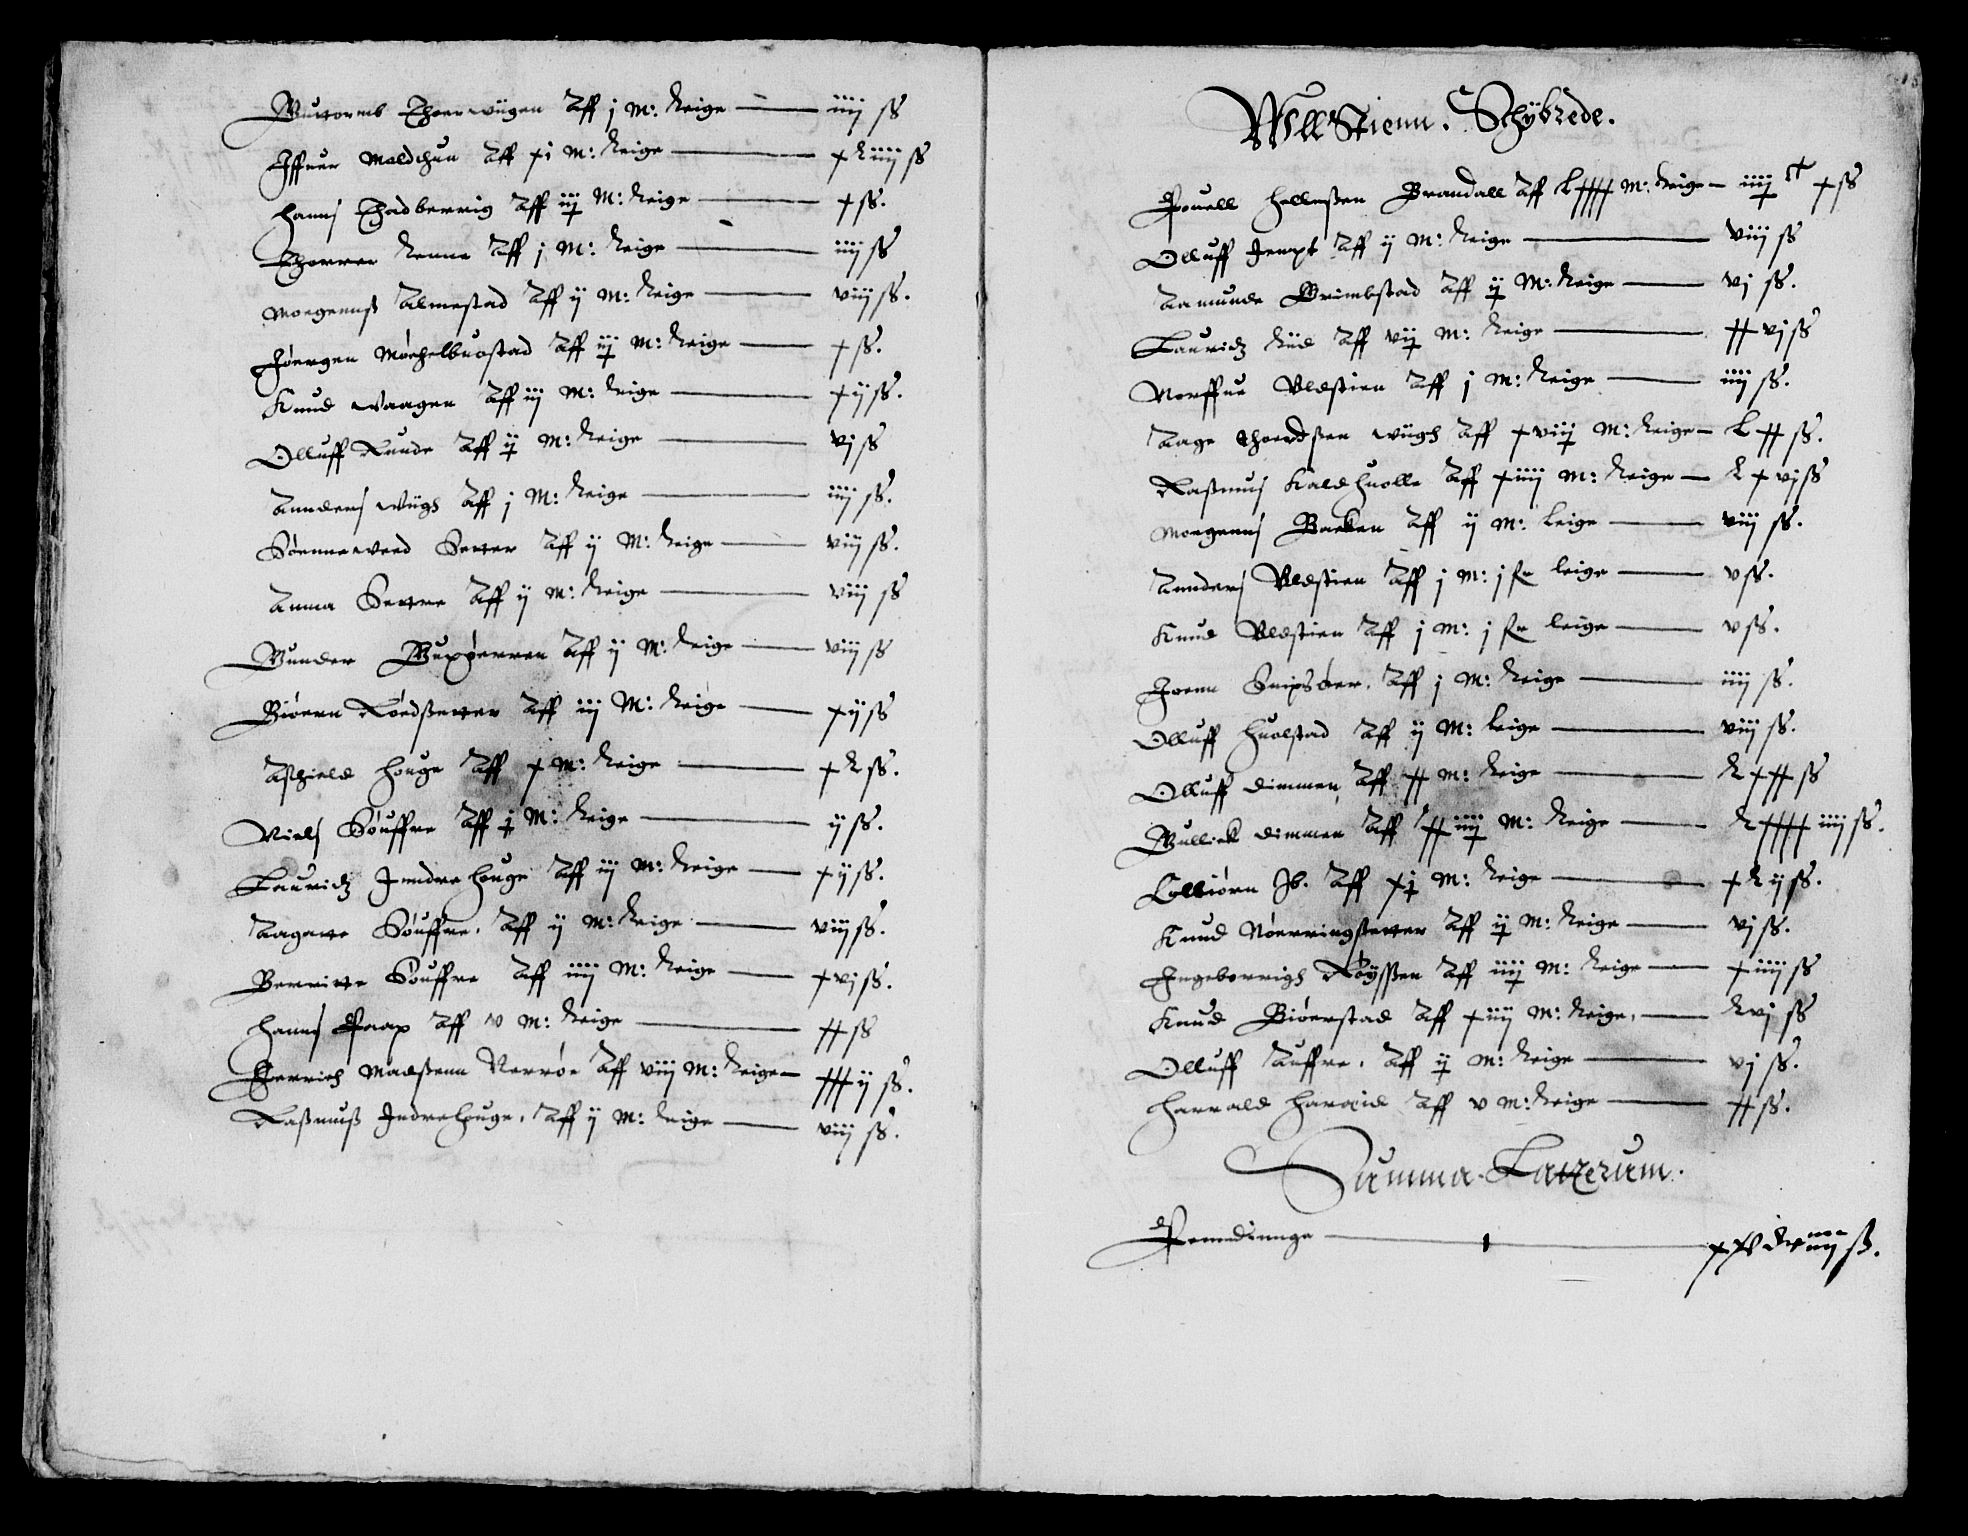 Guttormb Thoerwiigen Aff j m: Leige — iiij ss
Iffuer Maldchun Aff xi m: Leige — x L iiij ss
Hanns Thadberrig Aff iij m: Leige — x ss.
Thorrer Renne Aff j m: Leige — iiij ss
Moegennss Almestad Aff ij m: Leige — viij ss.
Jöergen Möchelbuostad Aff iij m: Leige — x ss.
Knud Waagen Aff iij m: Leige — xij ss.
Olluff Runde Aff ij m: Leige — vj ss
Anders Wiigh Aff j m: Leige — iiij ss.
Sönneweed Setter Aff ij m: Leige — viij ss.
Anna Settre Aff ij m: Leige — viij ss
Gunder Guröerren Aff ij m: Leige — viij ss
Biöern Rödssetter Aff iij m: Leige — xij ss
Asshield Houge Aff x m: Leige — x L ss.
Niels Söuffre Aff j m: Leige — ij ss.
Lauridz Jndrehouge Aff iij m: Leige — xij ss.
Aagatte Söuffre. Aff ij m: Leige — viij ss.
Berritte Söuffre Aff iiij m: Leige — xvj ss.
Hanns Paap Aff v m: Leige — xx ss
Herrich Madssenn Nerröe Aff viij m: Leige — xxx ij ss.
Rassmuss Indrehouge. Aff ij m: Leige — viij ss.
Wllstienn. Schÿbrede.
Pouell Hellessen Brandall Aff Lxxxx m: Leige — iiij x ss
Olluff Jempt Aff ij m: Leige — viij ss
Aamunde Grimbstad Aff ij m: Leige — vj ss.
Lauridz Liid Aff vij m: Leige — xx vj ss
Norffue Vldstien Aff j m: Leige — iiij ss.
Aage Thordssen Wiigh Aff xviij m: Leige — L xx ss.
Rassmus Kaldhuolle Aff xiiij m: Leige — L xvj ss
Moegenns Backen Aff ij m: Leige — viij ss.
Annders Vldstien Aff j m: j fr leige — v ss.
Knud Vldstien Aff j m: j fr leige — v ss.
Joenn Snipsöer. Aff j m: Leige — iiij ss.
Olluff Huolstad Aff ij m: Leige — viij ss.
Olluff Dimmen Aff xx m: Leige — L xxx ss
Gullick Dimmen Aff xx iiij m: Leige — L xxxx iiij ss.
Colbiörn Ib. Aff xj m: Leige — x L ij ss.
Knud Nöerringssetter Aff ij m: Leige — vj ss.
Ingeborrigh Röÿssen Aff iiij m: Leige — xiiij ss
Knud Biöerstad Aff xiiij m: Leige. — L vj ss
Olluff Auffre. Aff ij m: Leige — vj ss.
Harrald Hareid Aff v m: Leige — xx ss.
Summa Latterum.
Penndinnge — xxv iiij ss.